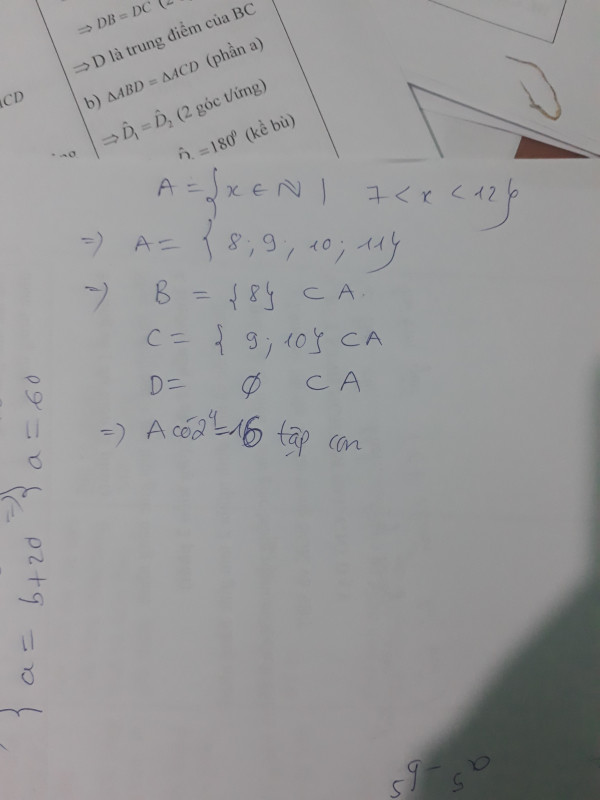 ⇒ DB = DC (2
⇒ D là trung điểm của BC
b) ΔABD = ΔACD (phần a)
⇒ D̂₁ = D̂₂ (2 góc t/ứng)
= 180⁰ (kề bù)
ACD
A = {x ∈ ℕ | 7 < x < 12}
=) A = { 8 ; 9 ; 10 ; 11}
=) B = {8} ⊂ A.
C = { 9 ; 10} ⊂ A
D = ∅ ⊂ A
=) A có 2⁴ = 16 tập con
} a = b + 20 =) } a = 60
a⁵ - b⁵